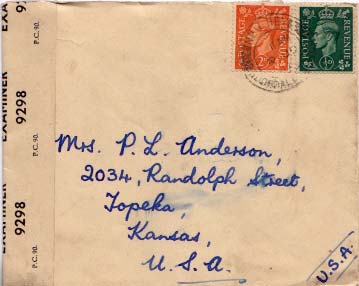 EXAMINER 9298
P.C. 90.
EXAMINER 9298
P.C. 90.
EXAMINER 9298
P.C. 90.
POSTAGE REVENUE
POSTAGE REVENUE
Mrs. P. L. Anderson,
2034, Randolph Street,
Topeka,
Kansas,
U. S. A.
U.S.A.